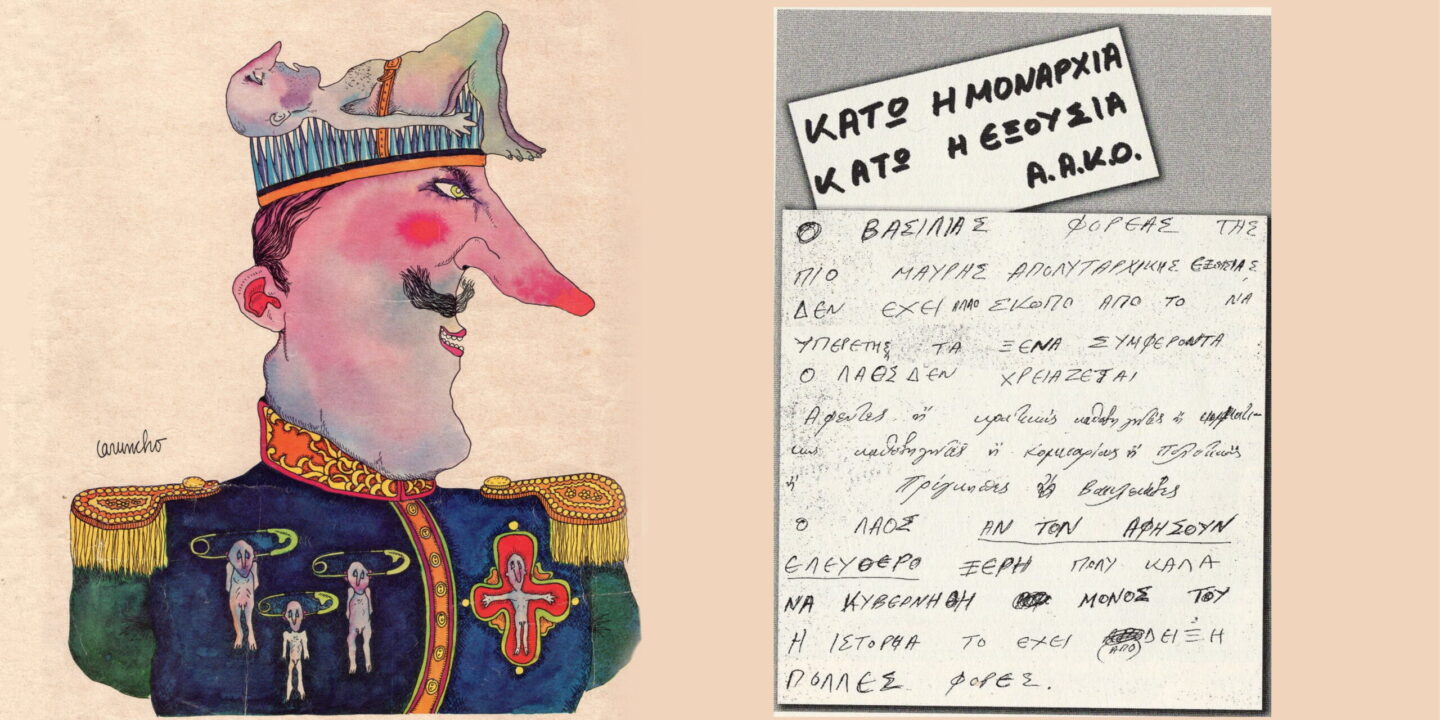 caruncho
ΚΑΤΩ Η ΜΟΝΑΡΧΙΑ
ΚΑΤΩ Η ΕΞΟΥΣΙΑ
Α.Α.Κ.Ο.
Ο ΒΑΣΙΛΙΑΣ ΦΟΡΕΑΣ ΤΗΣ
ΠΙΟ ΜΑΥΡΗΣ ΑΠΟΛΥΤΑΡΧΙΚΗΣ ΕΞΟΥΣΙΑΣ
ΔΕΝ ΕΧΕΙ ΑΛΛΟ ΣΚΟΠΟ ΑΠΟ ΤΟ ΝΑ
ΥΠΕΡΕΤΗΣΗ ΤΑ ΞΕΝΑ ΣΥΜΦΕΡΟΝΤΑ
Ο ΛΑΟΣ ΔΕΝ ΧΡΕΙΑΖΕΤΑΙ
Αφεντες ή κρατικούς καθοδηγητές ή
καθοδηγητές ή κομισαρίους ή Πολιτικούς
ή Πρίγκηπες ή Βασιλειάδες
Ο ΛΑΟΣ ΑΝ ΤΟΝ ΑΦΗΣΟΥΝ
ΕΛΕΥΘΕΡΟ ΞΕΡΗ ΠΟΛΥ ΚΑΛΑ
ΝΑ ΚΥΒΕΡΝΗΘΗ ΜΟΝΟΣ ΤΟΥ
Η ΙΣΤΟΡΗΑ ΤΟ ΕΧΕΙ (ΑΠΟ) ΔΕΙΞΗ
ΠΟΛΛΕΣ ΦΟΡΕΣ.